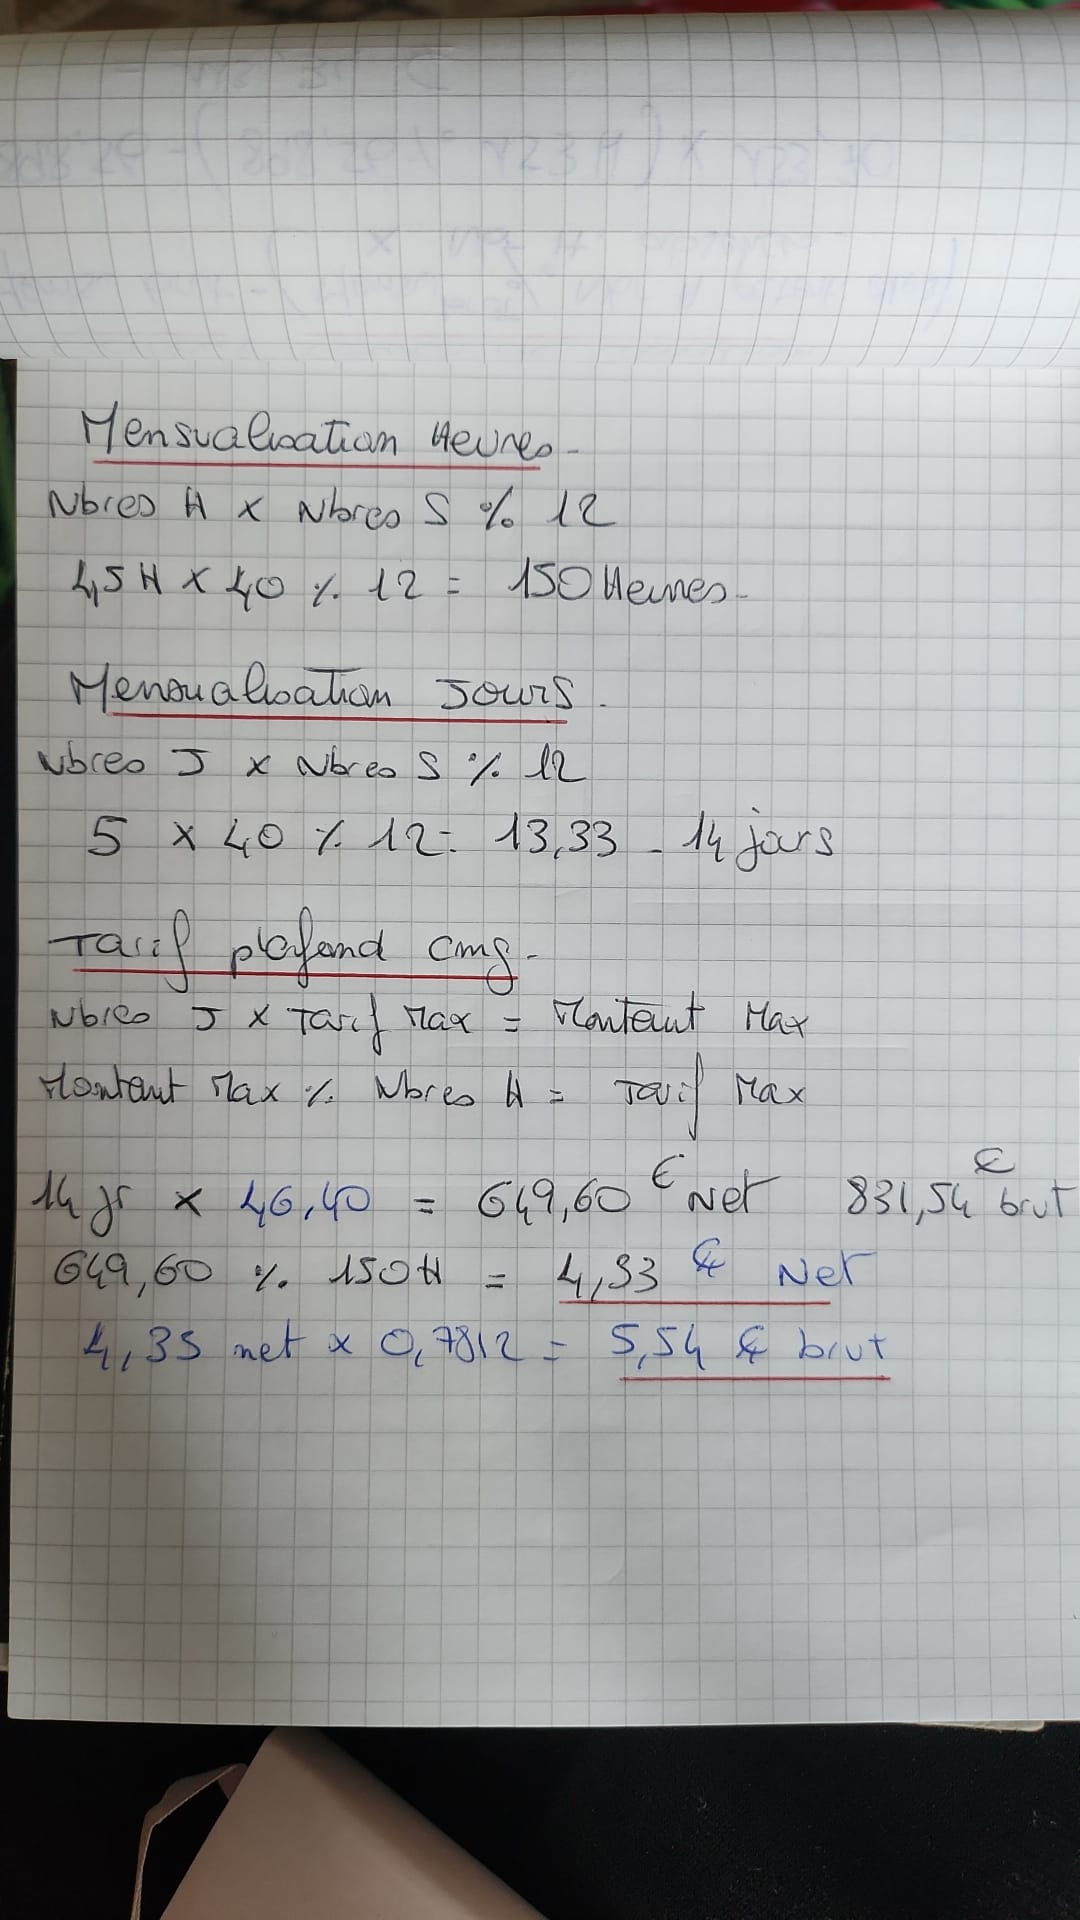 Mensualisation Heures -
Nbres H x Nbres S % 12
45H x 40 % 12 = 150 Heures -
Mensualisation Jours.
Nbres J x Nbres S % 12
5 x 40 % 12 = 13,33 - 14 jours
Tarif plafond cmg -
Nbres J x Tarif Max = Montant Max
Montant Max % Nbres H = Tarif Max
14 jr x 46,40 = 649,60 € Net 831,54 € brut
649,60 % 150H = 4,33 € Net
4,33 net x 0,7812 = 5,54 € brut